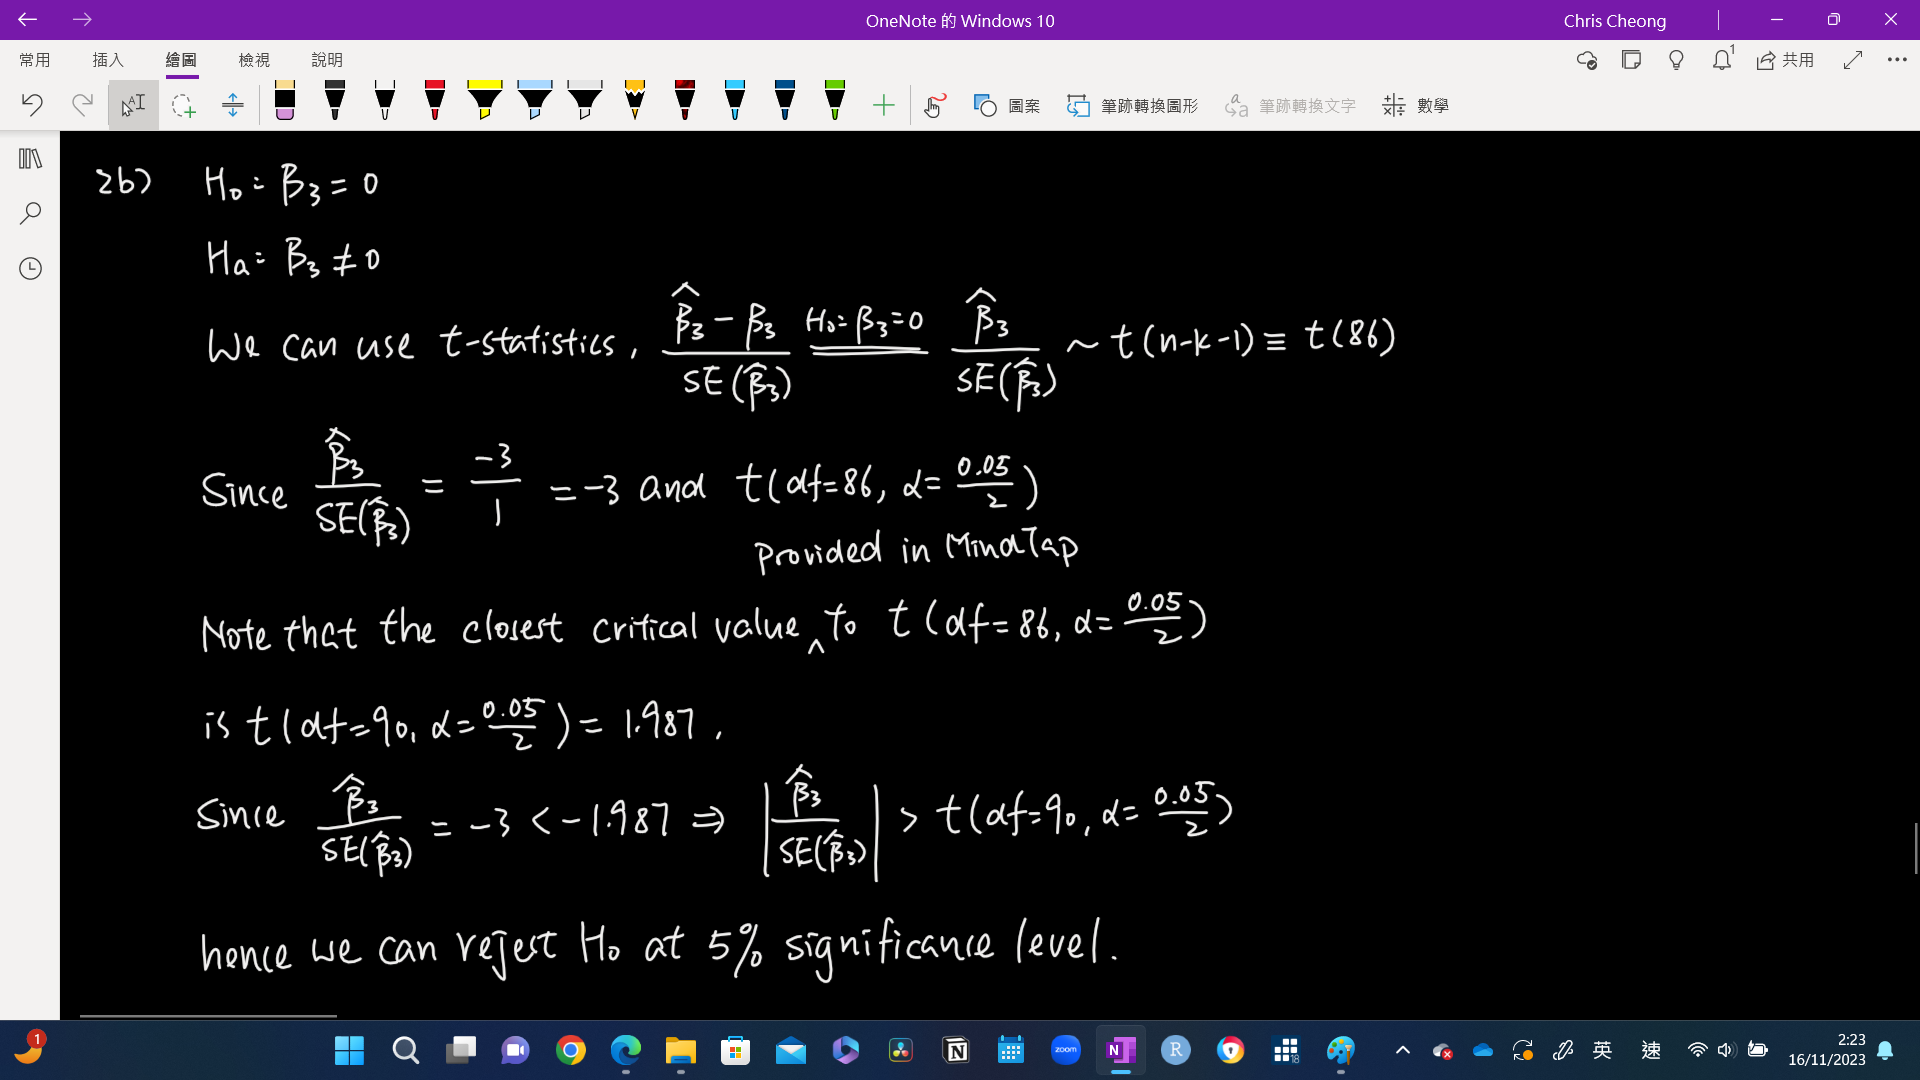 OneNote 的 Windows 10
Chris Cheong
常用 插入 繪圖 檢視 說明
1 共用
AI 圖案 筆跡轉換圖形 筆跡轉換文字 數學
2b) H₀: β₃ = 0
Ha: β₃ ≠ 0
We can use t-statistics, (β̂₃ - β₃)/SE(β̂₃) H₀: β₃ = 0 β̂₃/SE(β̂₃) ~ t(n-k-1) ≡ t(86)
Since β̂₃/SE(β̂₃) = -3/1 = -3 and t(df=86, α=0.05/2)
provided in MindTap
Note that the closest critical value ^ to t(df=86, α=0.05/2)
is t(df=90, α=0.05/2) = 1.987,
Since β̂₃/SE(β̂₃) = -3 < -1.987 ⇒ |β̂₃/SE(β̂₃)| > t(df=90, α=0.05/2)
hence we can reject H₀ at 5% significance level.
1
zoom
N
N
R
18
英
速
2:23
16/11/2023